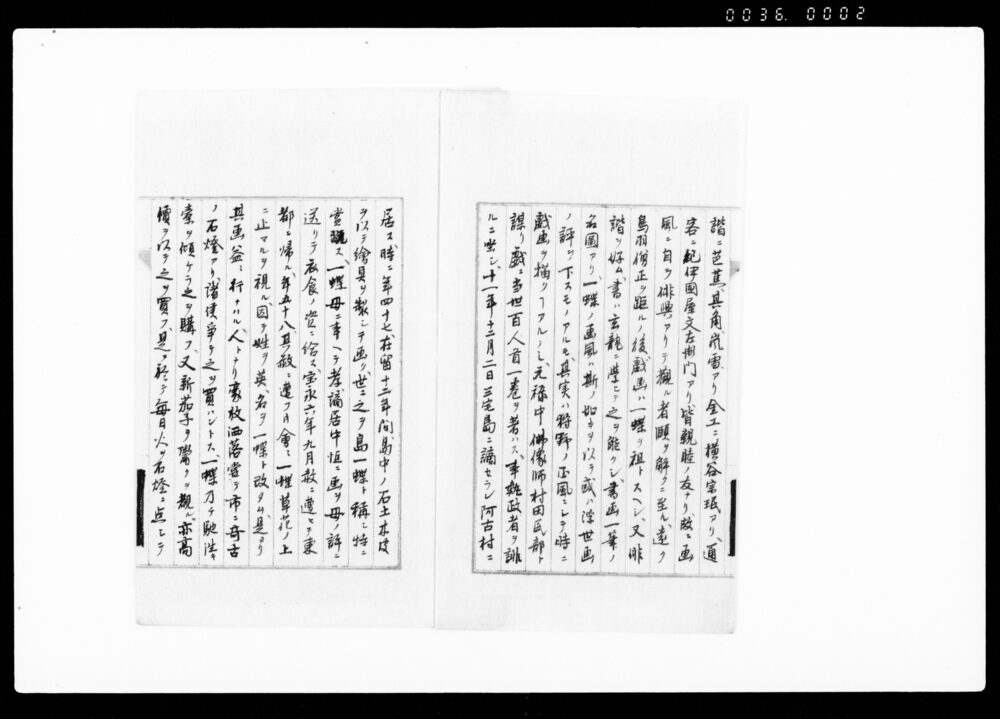 0036. 0002
諧ニ芭蕉、其角嵐雪アリ金工ニ横谷宗珉アリ、通
客ニ紀伊國屋文左衛門アリ皆親睦ノ友ナリ故ニ画
風ニ自ヲ俳興アリテ觀ル者頤ヲ解クニ至ル遠ク
鳥羽僧正ヲ距ルノ後戯画ハ一蝶ヲ祖トスヘシ、又俳
諧ヲ好ム、書ハ玄龍ニ學ヒテ之ヲ能クシ書画一筆ノ
名圖アリ、一蝶ノ画風ハ斯ノ如キヲ以テ或ハ浮世画
ノ評ヲ下スモノアルモ、其実ハ狩野ノ正風ニシテ時ニ
戯画ヲ描クアルノミ、元禄中佛像師村田民部ト
謀リ戯ニ当世百人首一巻ヲ著ハス、事執政者ヲ誹
ルニ坐シ、十一年十二月二日三宅島ニ謫セラレ阿古村ニ
居ス時ニ年四十七在留十二年间島中ノ石土木皮
ヲ以テ繪具ヲ製シテ画ク世ニ之ヲ島一蝶ト稱シ特ニ
賞翫ス、一蝶母ニ事ヘテ孝謫居中恒ニ画ヲ母ノ許ニ
送リテ衣食ノ資ニ給ス宝永六年九月赦ニ遭ヒテ東
都ニ帰ル、年五十八其赦ニ遭フヤ會ニ一蝶草花ノ上
ニ止マルヲ視ル因テ姓ヲ英、名ヲ一蝶ト改タム是ヨリ
其画益ミ行ナハル、人トナリ豪放洒落嘗テ市ニ奇古
ノ石燈アリ、諸侯爭テ之ヲ買ハントス、一蝶乃チ馳往キ
嚢ヲ傾ケテ之ヲ購フ、又新茄子ヲ鬻クヲ觀ル、亦高
價ヲ以テ之ヲ買フ是ニ於テ毎日火ヲ石燈ニ点シテ